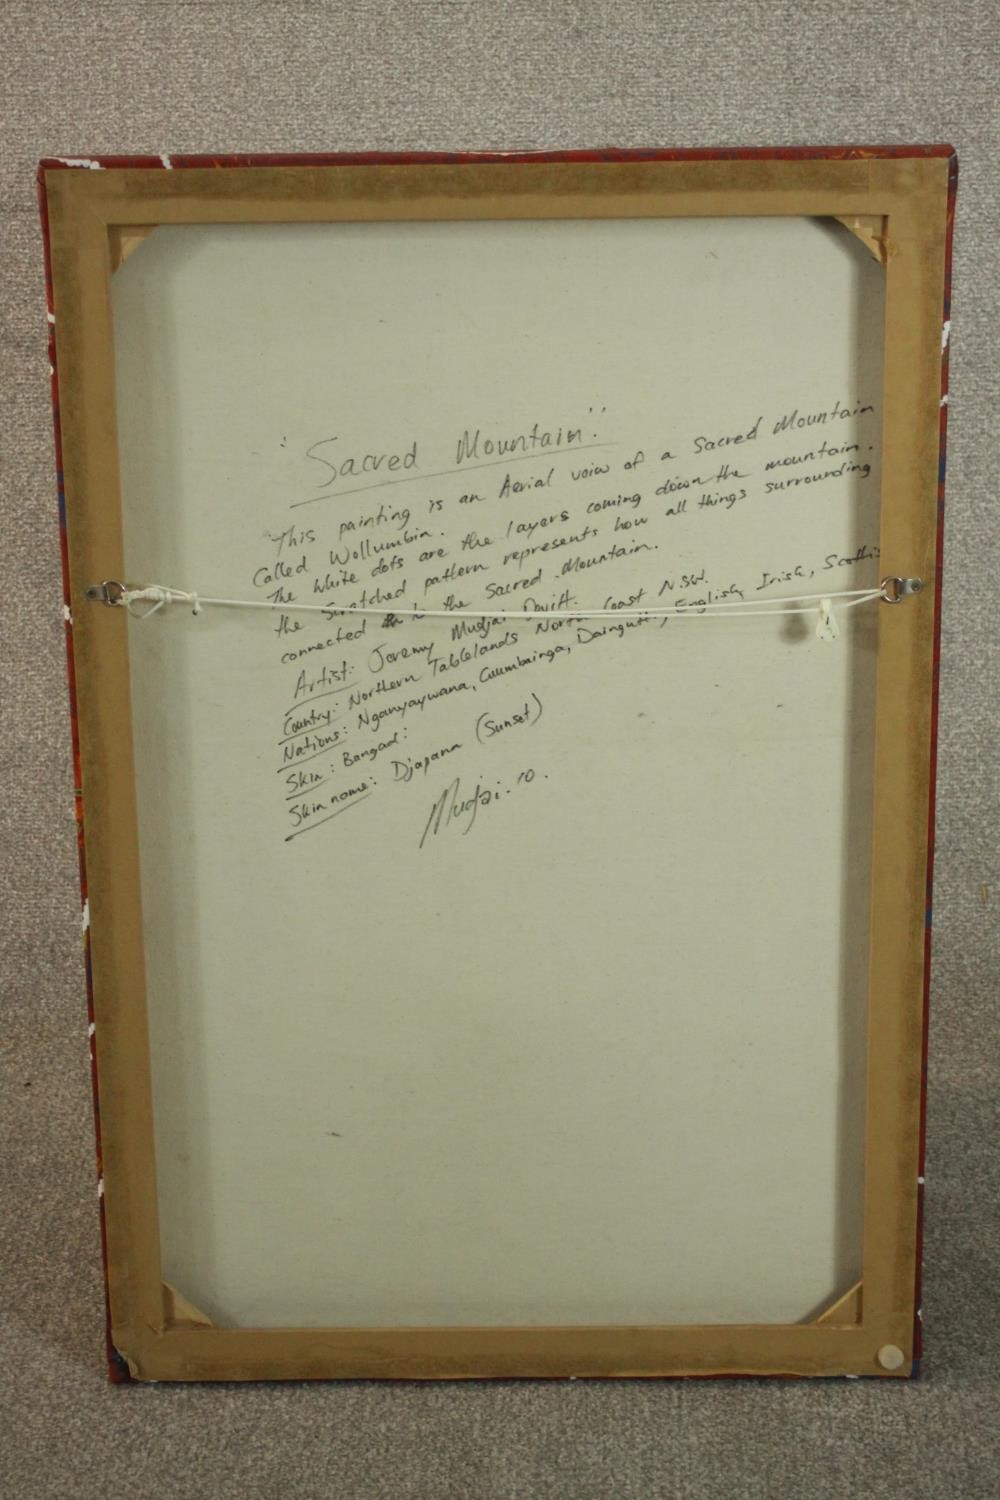 "Sacred Mountain".
This painting is an Aerial voiw of a Sacred Mountain
Called Wollumbin.
The White dots are the layers coming down the mountain.
the Scratched pattern represents how all things surrounding
connected to the Sacred Mountain.
Artist: Jeremy Mudjai Devitt.
Country: Northern Tablelands North Coast N.SW.
Nations: Nganyaywana, Cuumbainga, Daingutti, English, Irish, Scottis
Skin: Bangad:
Skin name: Djapana (Sunset)
Mudjai.'10.